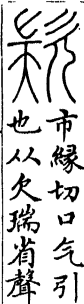 歂
市縁切口气引
也从欠瑞省聲